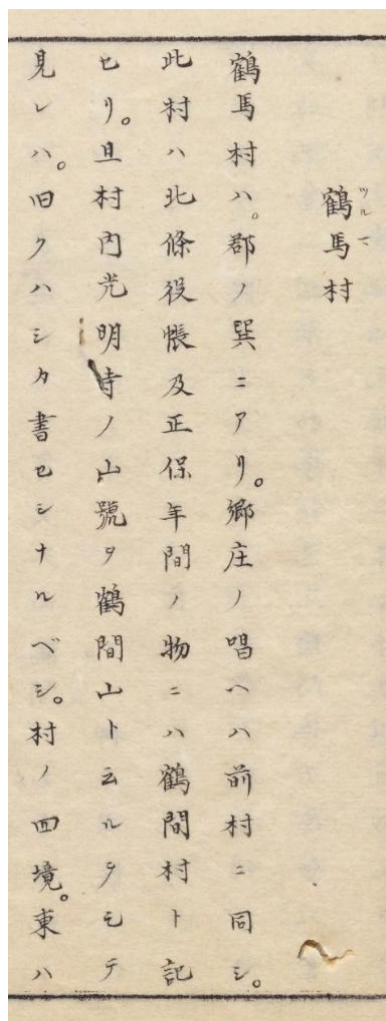 鶴馬村
ツルマ
鶴馬村ハ。郡ノ巽ニアリ。郷庄ノ唱ヘハ前村ニ同シ。
此村ハ北條役帳及正保年間ノ物ニハ鶴間村ト記
セリ。且村内光明寺ノ山號ヲ鶴間山ト云ルヲモテ
見レハ。旧クハシカ書セシナルベシ。村ノ四境。東ハ